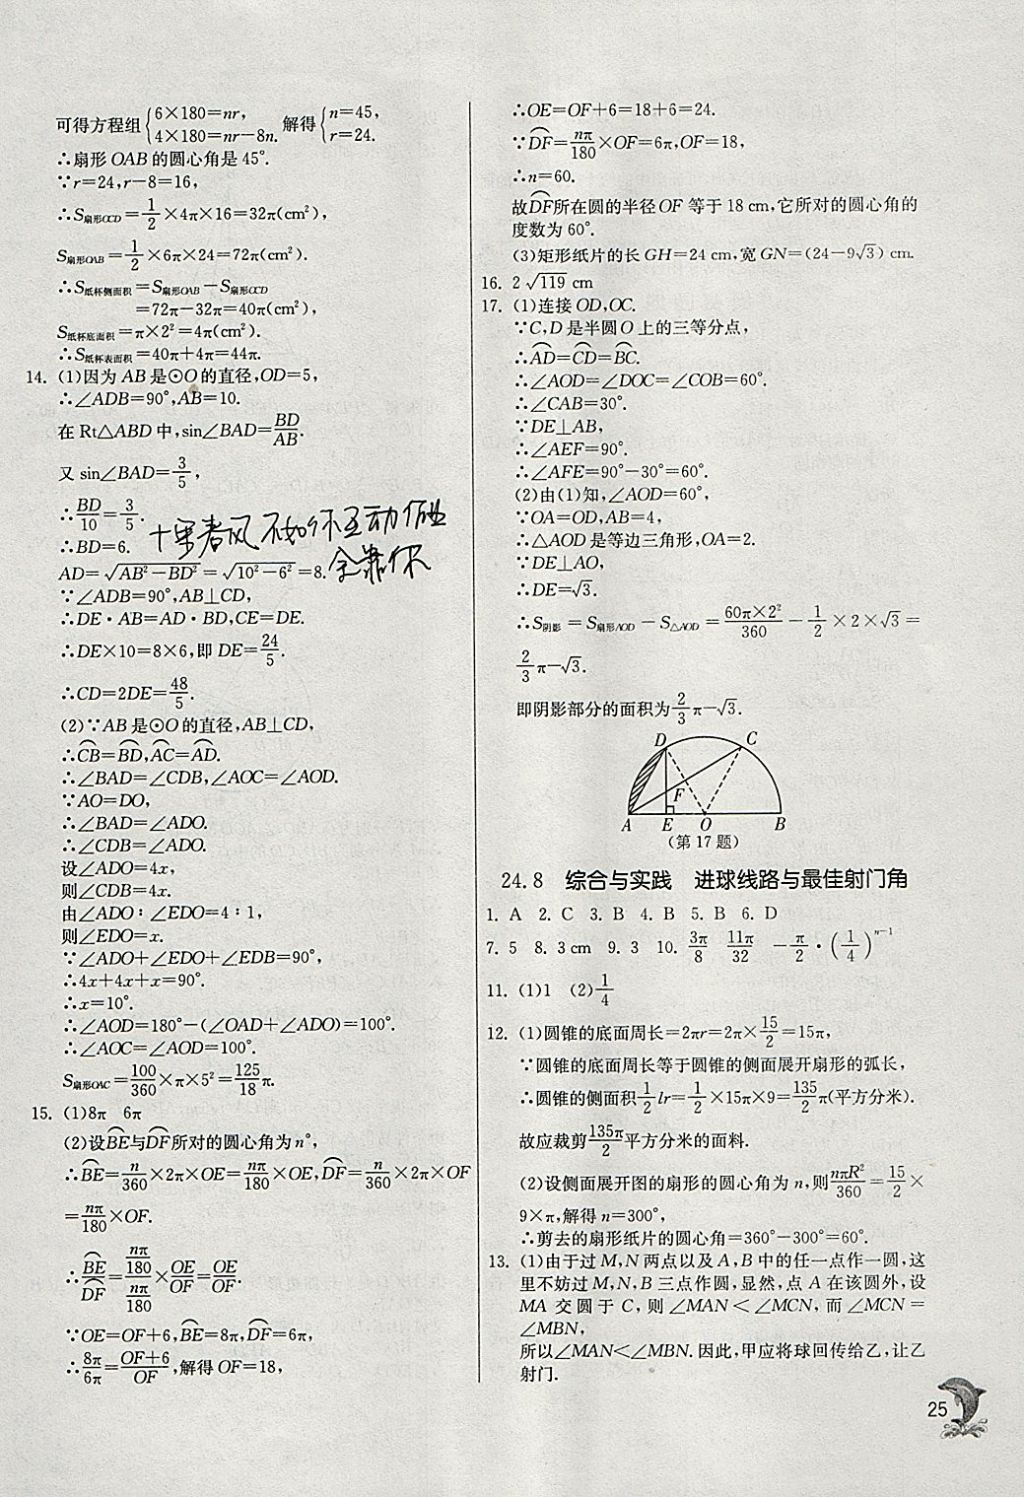 可得方程组{6×180=nr, 4×180=nr-8n. 解得{n=45, r=24.
∴扇形OAB的圆心角是45°.
∵r=24,r-8=16,
∴S扇形OCD=1/2×4π×16=32π(cm²),
S扇形OAB=1/2×6π×24=72π(cm²).
∴S纸杯侧面积=S扇形OAB-S扇形OCD
=72π-32π=40π(cm²).
S纸杯底面积=π×2²=4π(cm²).
∴S纸杯表面积=40π+4π=44π.
14. (1)因为AB是⊙O的直径,OD=5,
∴∠ADB=90°,AB=10.
在Rt△ABD中,sin∠BAD=BD/AB.
又sin∠BAD=3/5,
∴BD/10=3/5.
∴BD=6.
十里春风不如你互动作业
全靠你
AD=√(AB²-BD²)=√(10²-6²)=8.
∵∠ADB=90°,AB⊥CD,
∴DE·AB=AD·BD,CE=DE.
∴DE×10=8×6,即DE=24/5.
∴CD=2DE=48/5.
(2)∵AB是⊙O的直径,AB⊥CD,
∴⌒CB=⌒BD,⌒AC=⌒AD.
∴∠BAD=∠CDB,∠AOC=∠AOD.
∵AO=DO,
∴∠BAD=∠ADO.
∴∠CDB=∠ADO.
设∠ADO=4x,
则∠CDB=4x.
由∠ADO∶∠EDO=4∶1,
则∠EDO=x.
∵∠ADO+∠EDO+∠EDB=90°,
∴4x+4x+x=90°.
∴x=10°.
∴∠AOD=180°-(∠OAD+∠ADO)=100°.
∴∠AOC=∠AOD=100°.
S扇形OAC=100/360×π×5²=125/18π.
15. (1)8π 6π
(2)设⌒BE与⌒DF所对的圆心角为n°,
∴⌒BE=n/360×2π×OE=nπ/180×OE,⌒DF=n/360×2π×OF
=nπ/180×OF.
∴⌒BE/⌒DF=(nπ/180)/(nπ/180)×OE/OF=OE/OF.
∵OE=OF+6,⌒BE=8π,⌒DF=6π,
∴8π/6π=(OF+6)/OF,解得OF=18,
∴OE=OF+6=18+6=24.
∵⌒DF=nπ/180×OF=6π,OF=18,
∴n=60.
故⌒DF所在圆的半径OF等于18 cm,它所对的圆心角的
度数为60°.
(3)矩形纸片的长GH=24 cm,宽GN=(24-9√3) cm.
16. 2√119 cm
17. (1)连接OD,OC.
∵C,D是半圆O上的三等分点,
∴⌒AD=⌒CD=⌒BC.
∴∠AOD=∠DOC=∠COB=60°.
∴∠CAB=30°.
∵DE⊥AB,
∴∠AEF=90°.
∴∠AFE=90°-30°=60°.
(2)由(1)知,∠AOD=60°,
∵OA=OD,AB=4,
∴△AOD是等边三角形,OA=2.
∵DE⊥AO,
∴DE=√3.
∴S阴影=S扇形AOD-S△AOD=60π×2²/360-1/2×2×√3=
2/3π-√3.
即阴影部分的面积为2/3π-√3.
D C
F
A E O B
(第17题)
24.8 综合与实践 进球线路与最佳射门角
1. A 2. C 3. B 4. B 5. B 6. D
7. 5 8. 3 cm 9. 3 10. 3π/8 11π/32 -π/2·(1/4)ⁿ⁻¹
11. (1)1 (2)1/4
12. (1)圆锥的底面周长=2πr=2π×15/2=15π,
∵圆锥的底面周长等于圆锥的侧面展开扇形的弧长,
∴圆锥的侧面积1/2lr=1/2×15π×9=135/2(平方分米).
故应裁剪135π/2平方分米的面料.
(2)设侧面展开图的扇形的圆心角为n,则nπR²/360=15/2×
9×π,解得n=300°,
∴剪去的扇形纸片的圆心角=360°-300°=60°.
13. (1)由于过M,N两点以及A,B中的任一点作一圆,这
里不妨过M,N,B三点作圆,显然,点A在该圆外,设
MA交圆于C,则∠MAN<∠MCN,而∠MCN=
∠MBN,
所以∠MAN<∠MBN.因此,甲应将球回传给乙,让乙
射门.
25